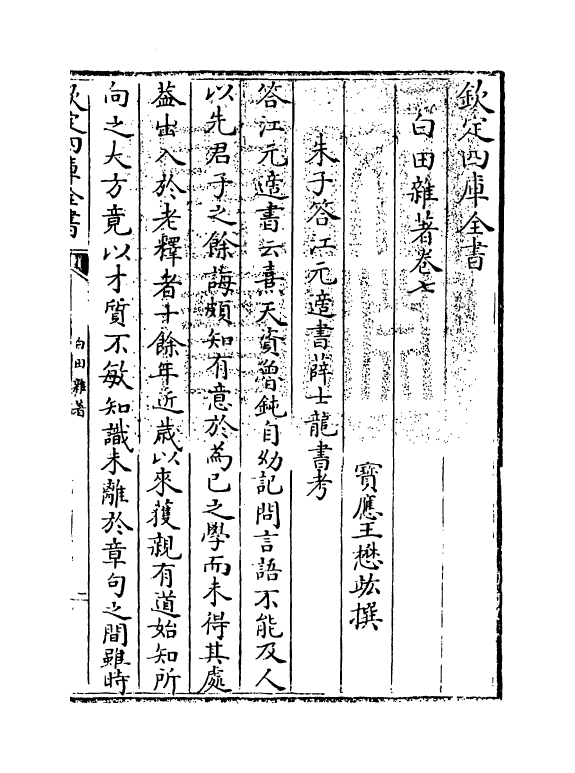 欽定四庫全書
白田雜著卷七
寶應王懋竑撰
朱子答江元適書薛士龍書考
答江元適書云熹天資魯鈍自幼記問言語不能及人
以先君子之餘誨頗知有意於為己之學而未得其處
葢出入於老釋者十餘年近歳以來獲親有道始知所
向之大方竟以才質不敏知識未離於章句之間雖時
欽定四庫全書
白田雜著